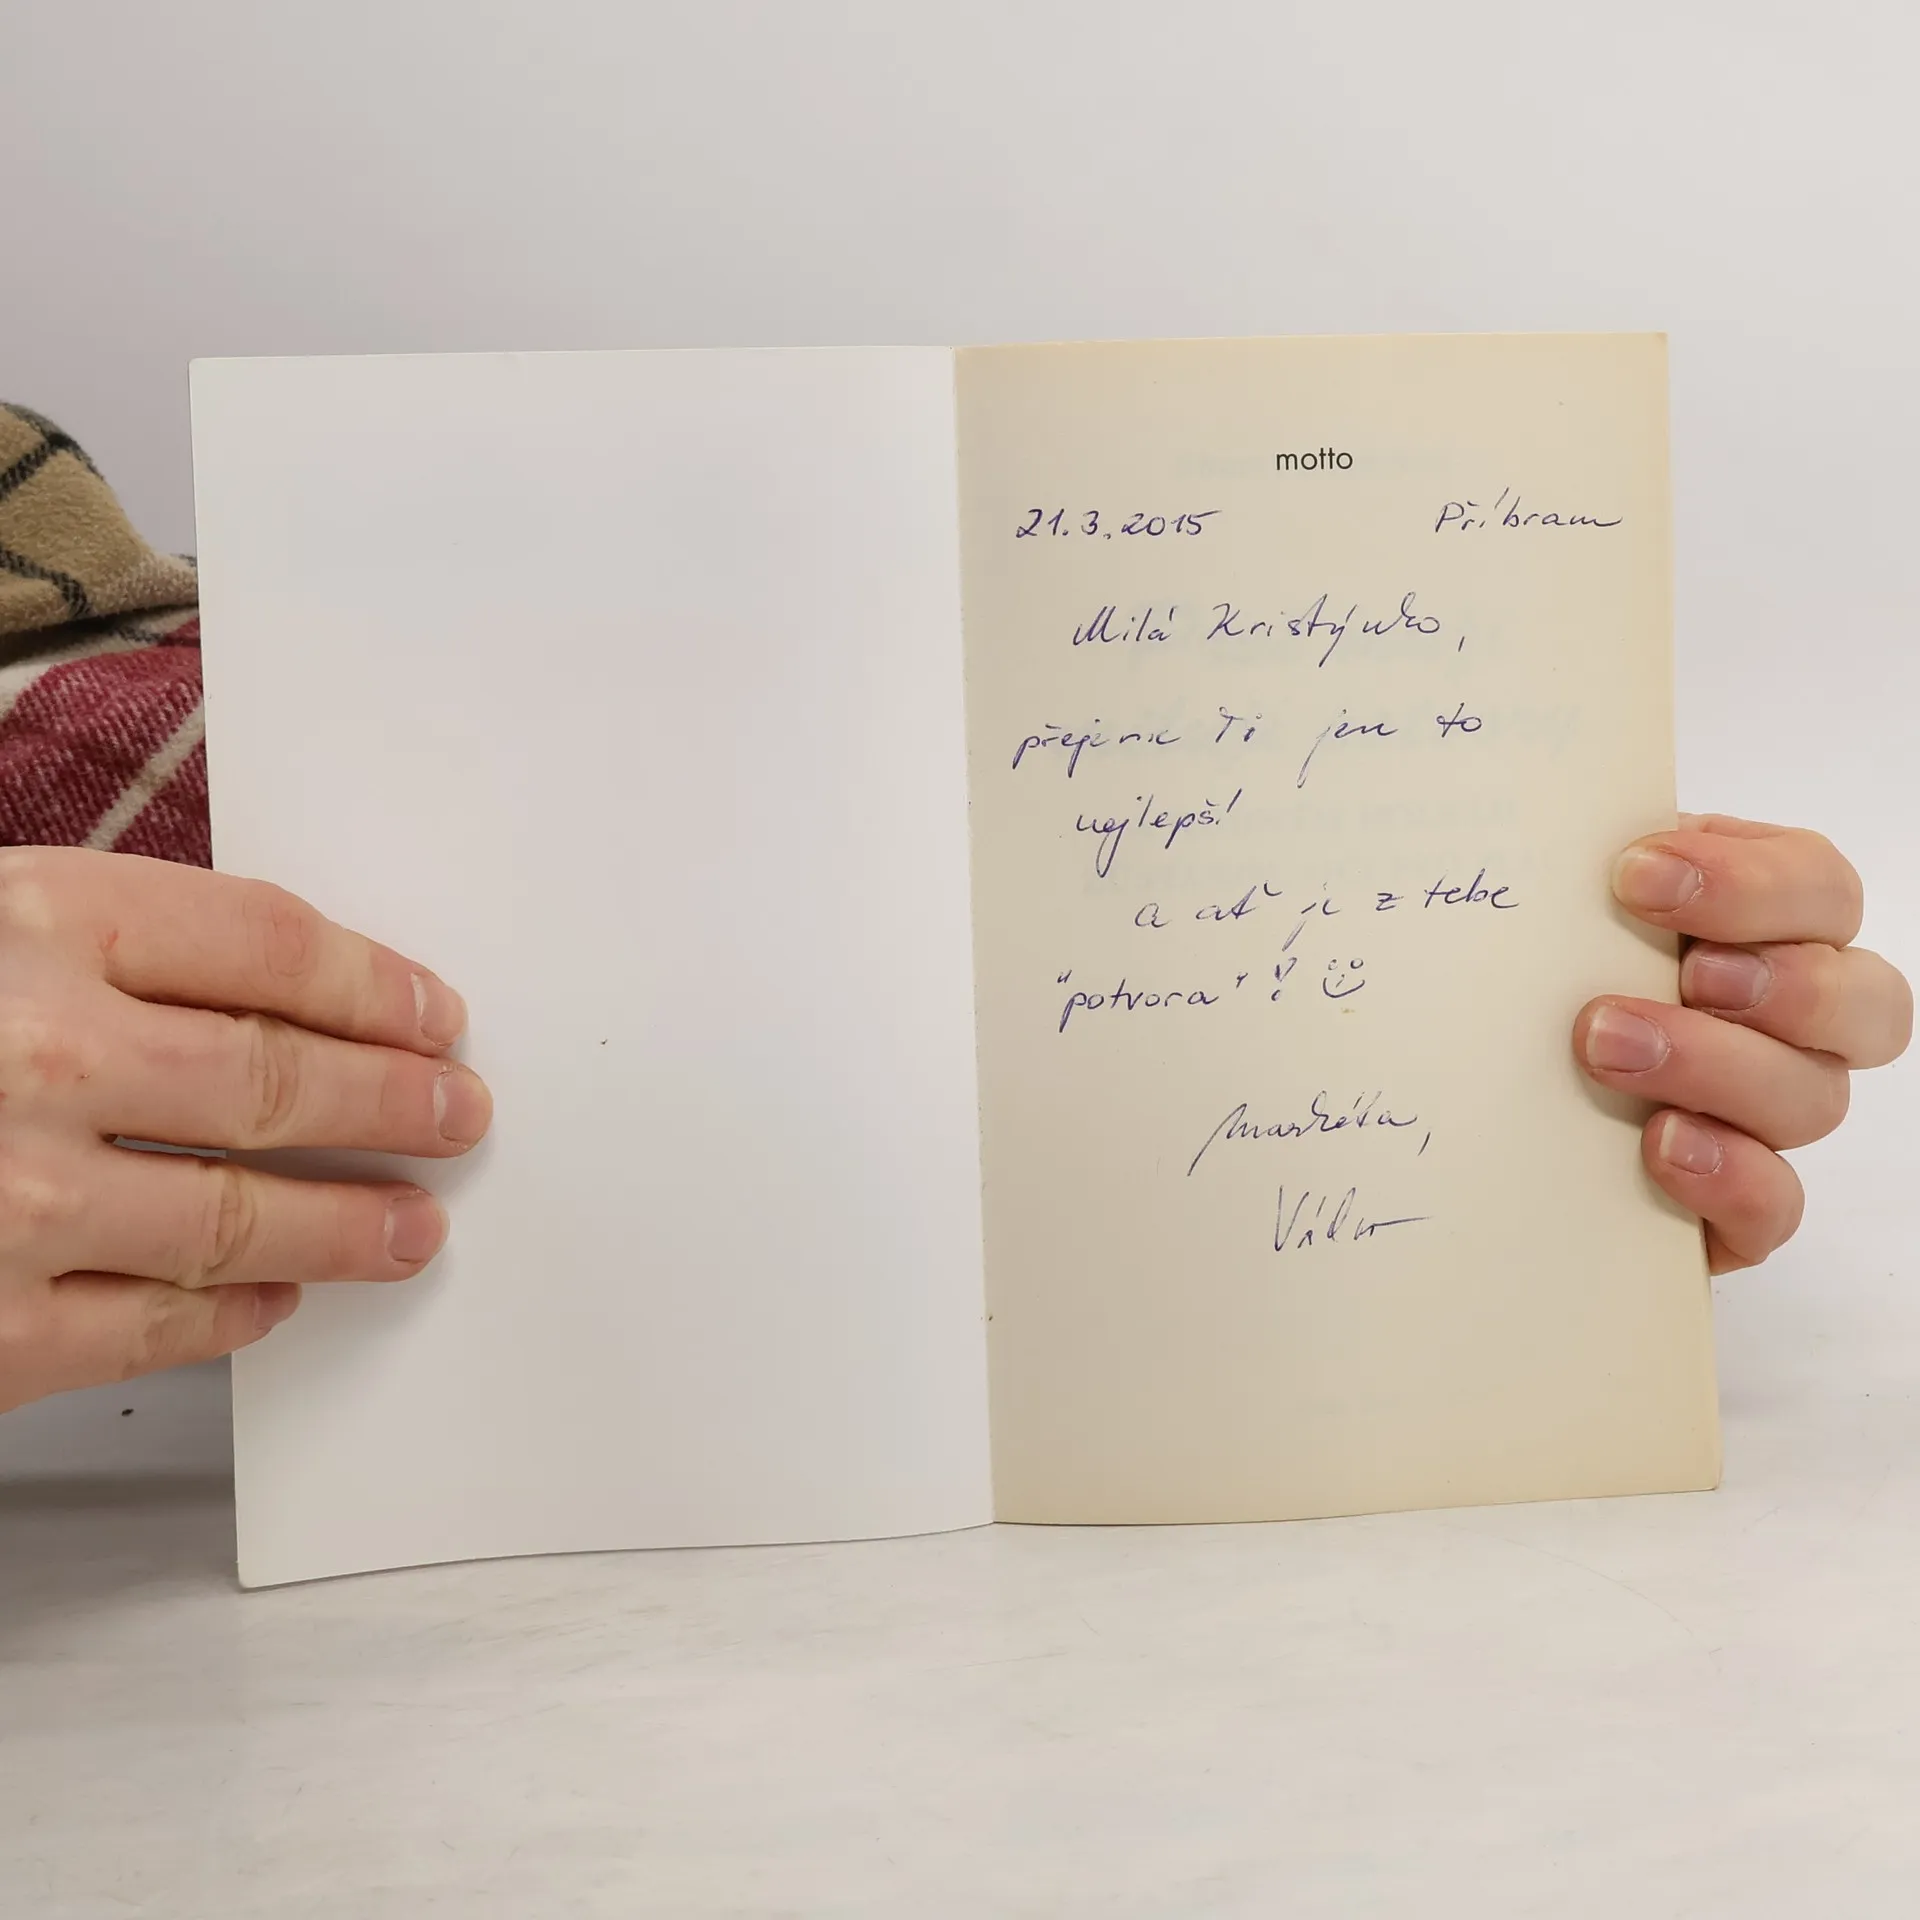 motto
21.3.2015 Příbram
Milá Kristýnko,
přejeme Ti jen to
nejlepší!
a ať je z tebe
"potvora"! ☺
Markéta,